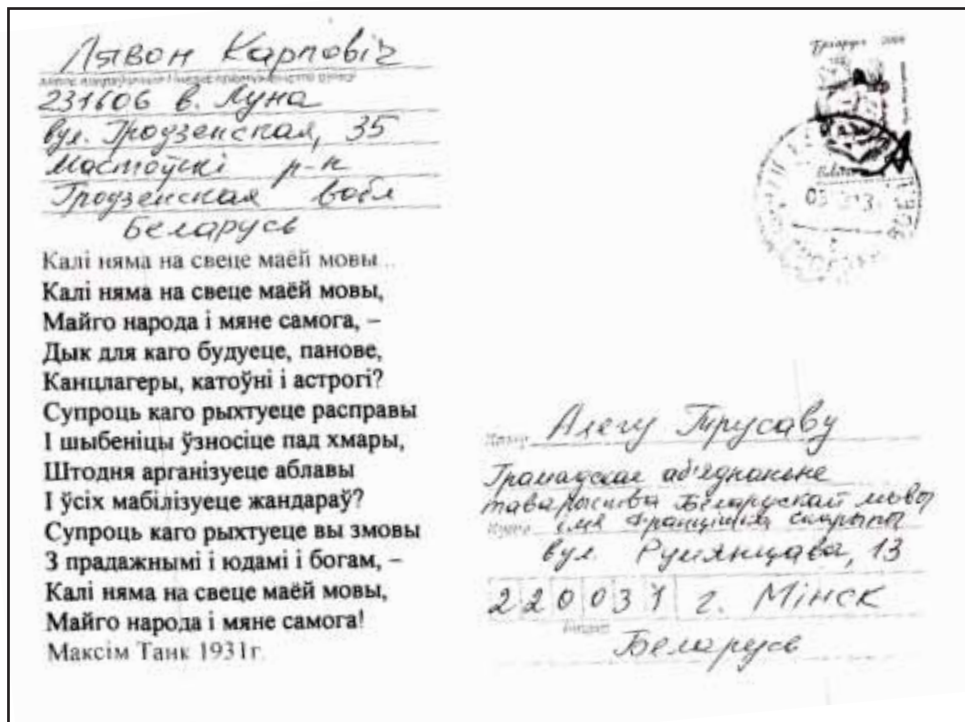 Лявон Карповіч
231606 в. Луна
вул. Гродзенская, 35
Мастоўскі р-н
Гродзенская вобл
Беларусь
Калі няма на свеце маёй мовы...
Калі няма на свеце маёй мовы,
Майго народа і мяне самога, –
Дык для каго будуеце, панове,
Канцлагеры, катоўні і астрогі?
Супроць каго рыхтуеце расправы
І шыбеніцы ўзносіце пад хмары,
Штодня арганізуеце аблавы
І ўсіх мабілізуеце жандараў?
Супроць каго рыхтуеце вы змовы
З прадажнымі і юдамі і богам, –
Калі няма на свеце маёй мовы,
Майго народа і мяне самога!
Максім Танк 1931г.
Беларусь
Алегу Трусаву
Грамадскае аб'яднаньне
таварыства Беларускай мовы
імя Францішка Скарыны
вул. Румянцава, 13
220031 г. Мінск
Беларусь